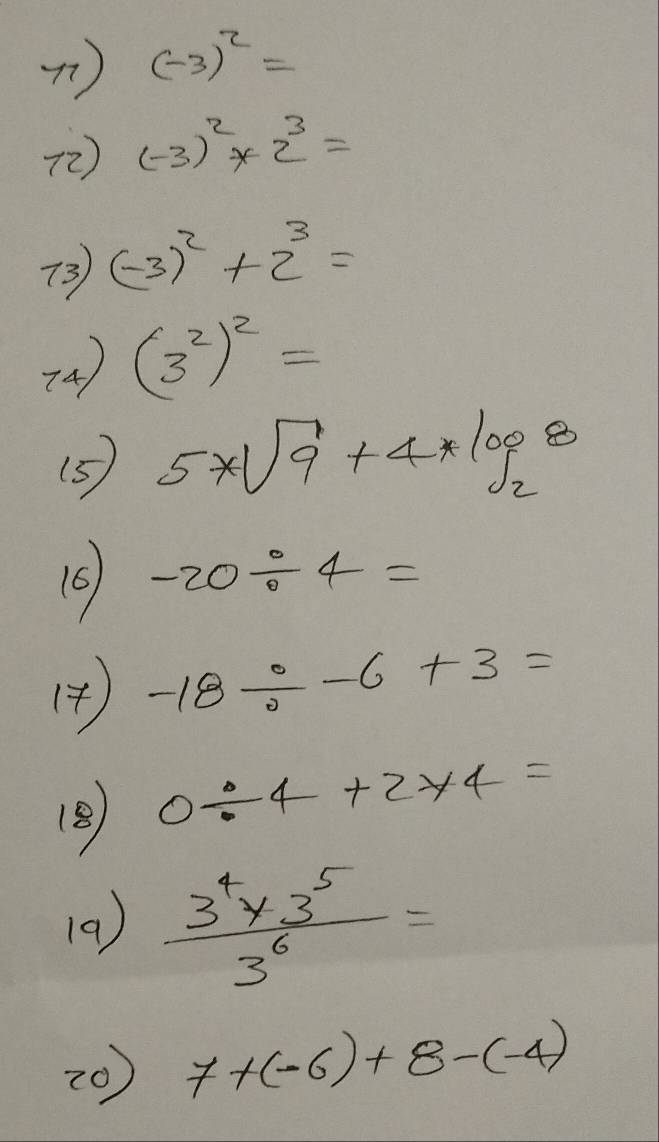 11) (-3)² =
12) (-3)² * 2³ =
13) (-3)² + 2³ =
14) (3²)² =
15) 5*√9 + 4*log₂ 8
16) -20 ÷ 4 =
17) -18 ÷ -6 + 3 =
18) 0 ÷ 4 + 2 * 4 =
19) (3⁴ * 3⁵) / 3⁶ =
20) 7+(-6)+8-(-4)